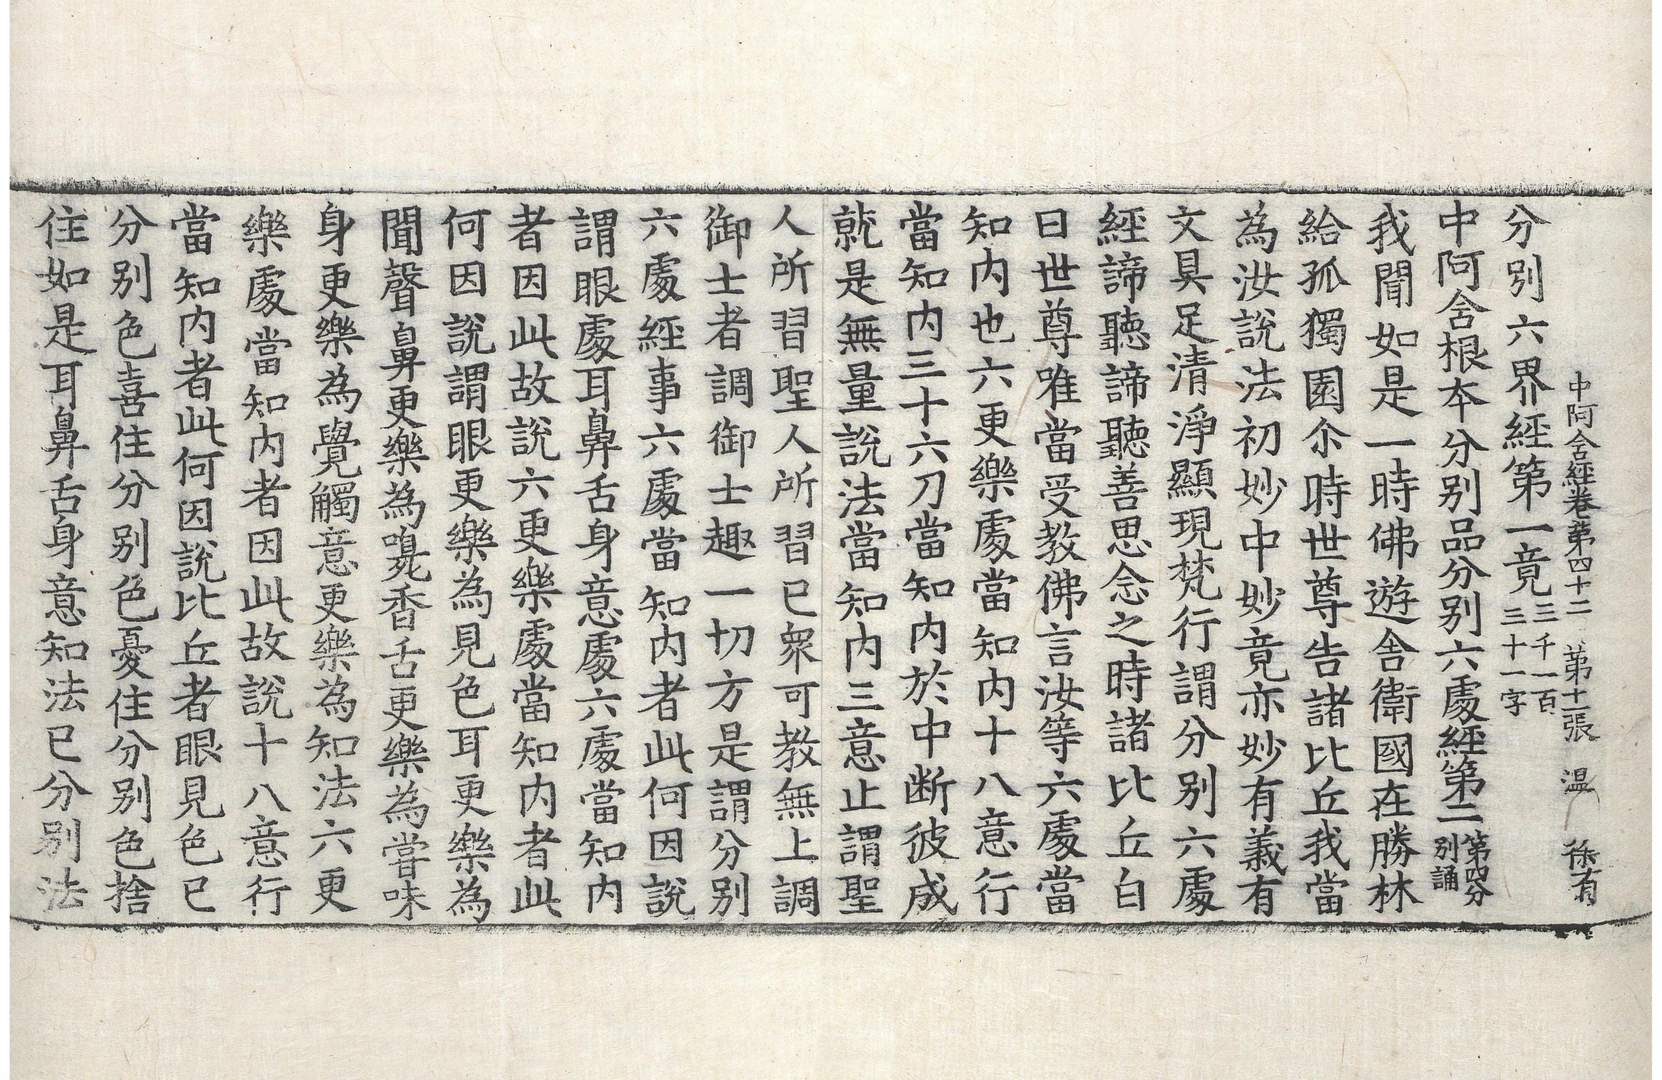 中阿含經卷第四十二 第十一張 温 徐有
分別六界經第一竟三千一百三十一字
中阿含根本分別品分別六處經第二第四分別誦
我聞如是一時佛遊舍衛國在勝林
給孤獨園尒時世尊告諸比丘我當
為汝說法初妙中妙竟亦妙有義有
文具足清淨顯現梵行謂分別六處
經諦聽諦聽善思念之時諸比丘白
曰世尊唯當受教佛言汝等六處當
知內也六更樂處當知內十八意行
當知內三十六刀當知內於中断彼成
就是無量說法當知內三意止謂聖
人所習聖人所習已衆可教無上調
御士者調御士趣一切方是謂分別
六處經事六處當知內者此何因說
謂眼處耳鼻舌身意處六處當知內
者因此故說六更樂處當知內者此
何因說謂眼更樂為見色耳更樂為
聞聲鼻更樂為嗅香舌更樂為甞味
身更樂為覺觸意更樂為知法六更
樂處當知內者因此故說十八意行
當知內者此何因說比丘者眼見色已
分別色喜住分別色憂住分別色捨
住如是耳鼻舌身意知法已分別法